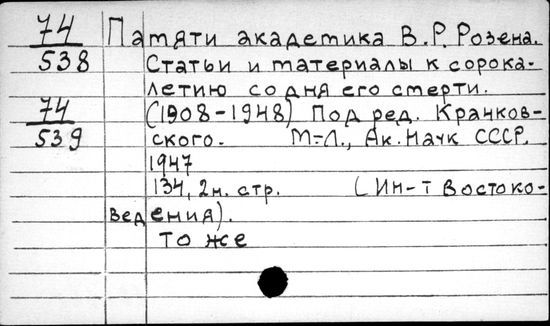 74 Памяти академика В.Р. Розена.
538 Статьи и материалы к сорока-
летию со дня его смерти.
74 (1908-1948) Под ред. Крачков-
539 ского. М=Л., Ак. Наук СССР,
1947
134, 2н. стр. (Ин-т востоко-
ведения).
то же